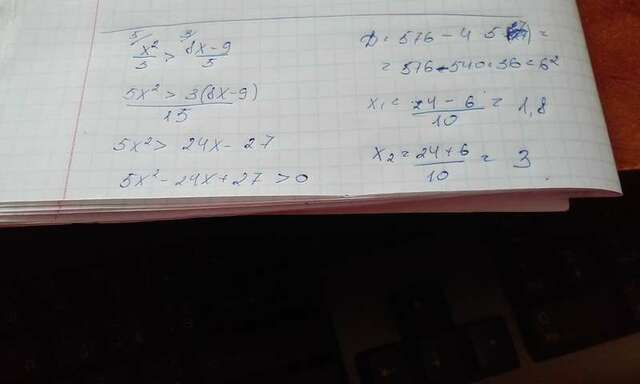 5/ x²/3 > 3/ 8x-9/5
5x² > 3(8x-9) / 15
5x² > 24x - 27
5x² - 24x + 27 > 0
D = 576 - 4 5 27) =
= 576 - 540 = 36 = 6²
x₁ = 24 - 6 / 10 = 1,8
x₂ = 24 + 6 / 10 = 3